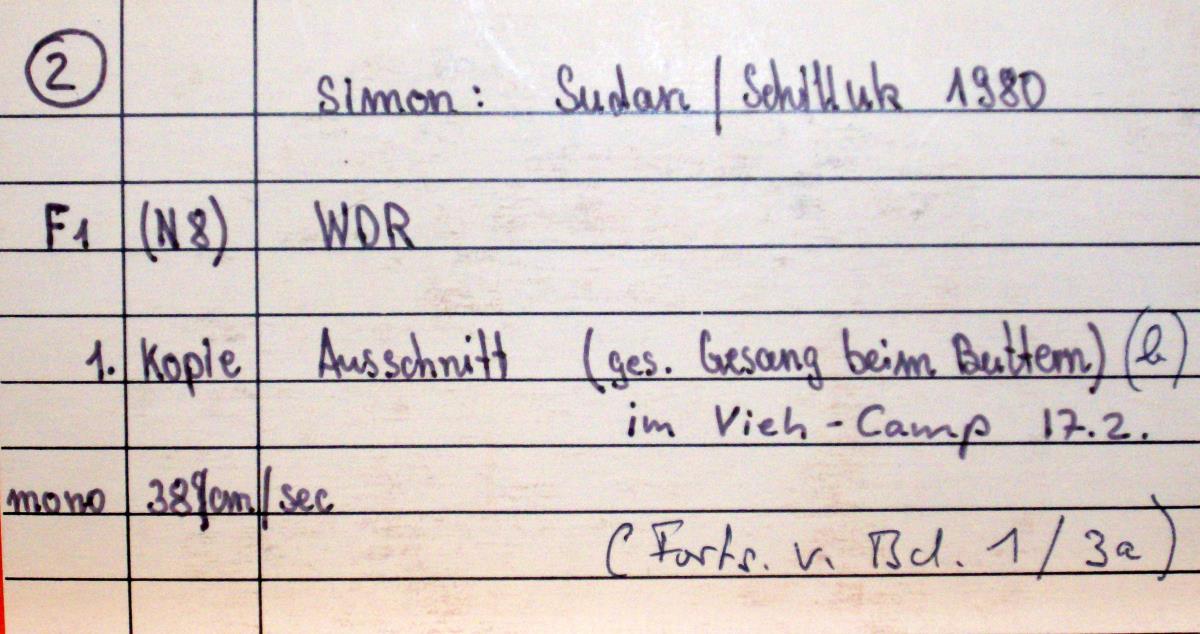 2 Simon: Sudan / Schilluk 1980
F1 (N8) WDR
1. Kopie Ausschnitt (ges. Gesang beim Buttern) (b)
im Vieh-Camp 17.2.
mono 38 cm/sec
(Forts. v. Bd. 1/3a)